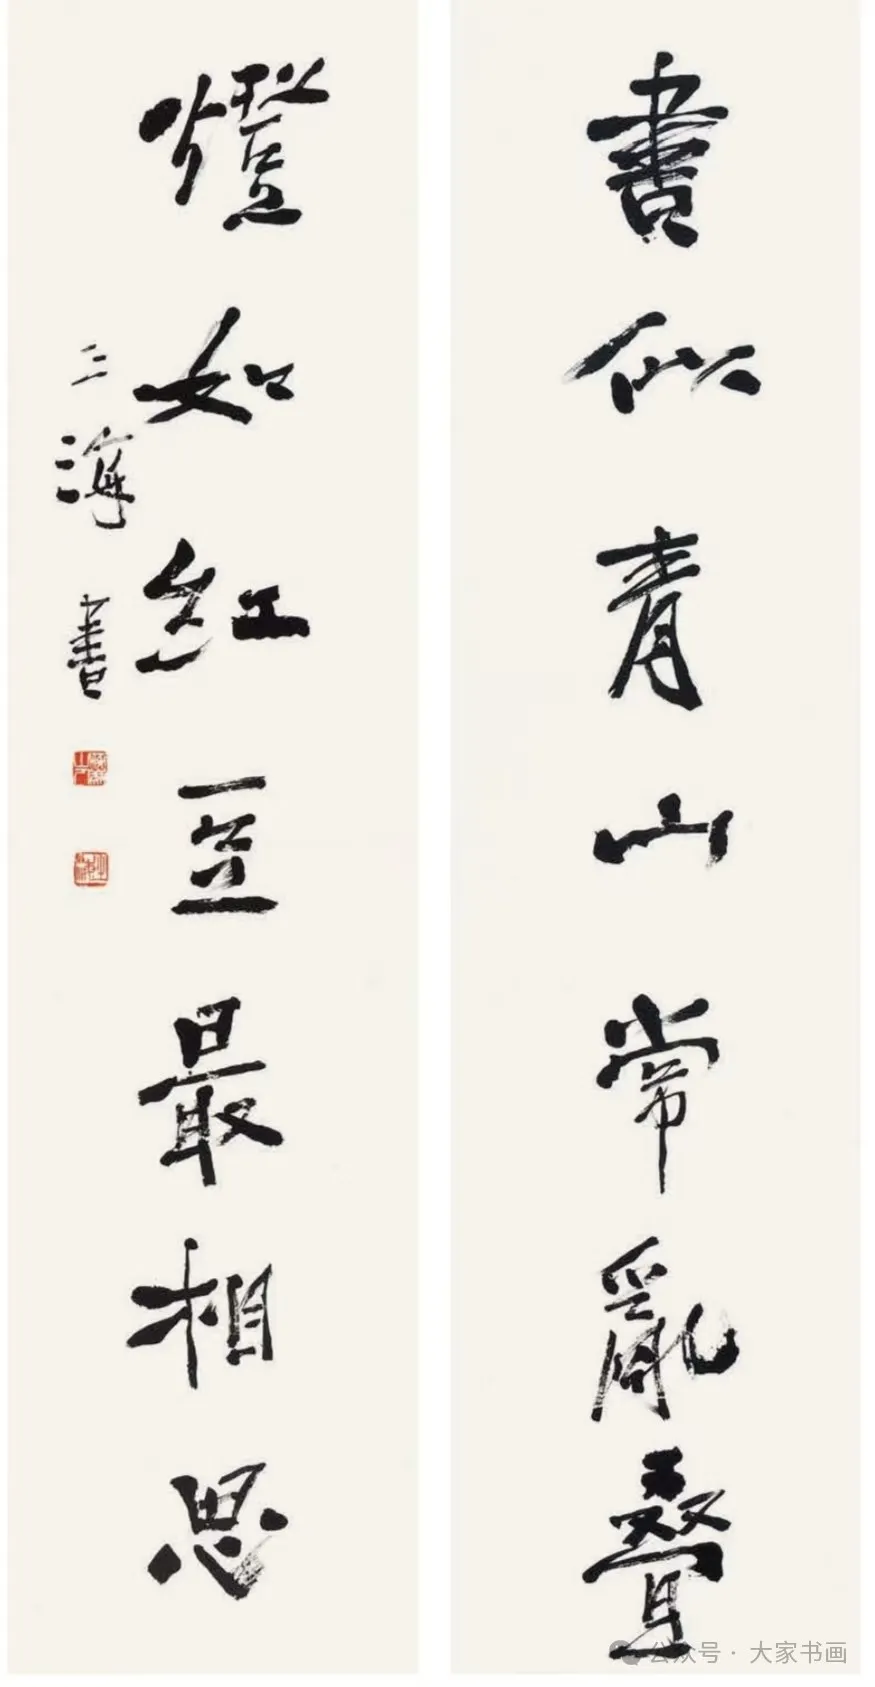 書似青山常亂疊
燈如紅豆最相思
三海書
公众号 · 大家书画